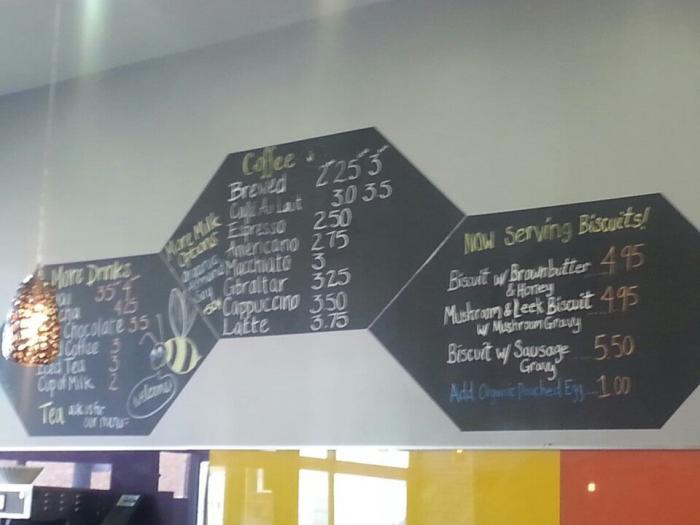 More Drinks
35 4
425
Chocolate 35
Coffee 3
Iced Tea 3
Cup of Milk 2
Tea ask is for
our menu
welcome
More Milk
Options
Organic
Almond
Soy
Coffee
Brewed 2 25 3
Café Au Lait 3.0 35
Espresso 2.50
Americano 2 75
Macchiato 3
Gibraltar 3 25
Cappuccino 3.50
Latte 3.75
Now Serving Biscuits!
Biscuit w/ Brownbutter 4 95
& Honey
Mushroom & Leek Biscuit 4.95
w/ Mushroom Gravy
Biscuit w/ Sausage 5.50
Gravy
Add Organic Poached Egg... 1 00